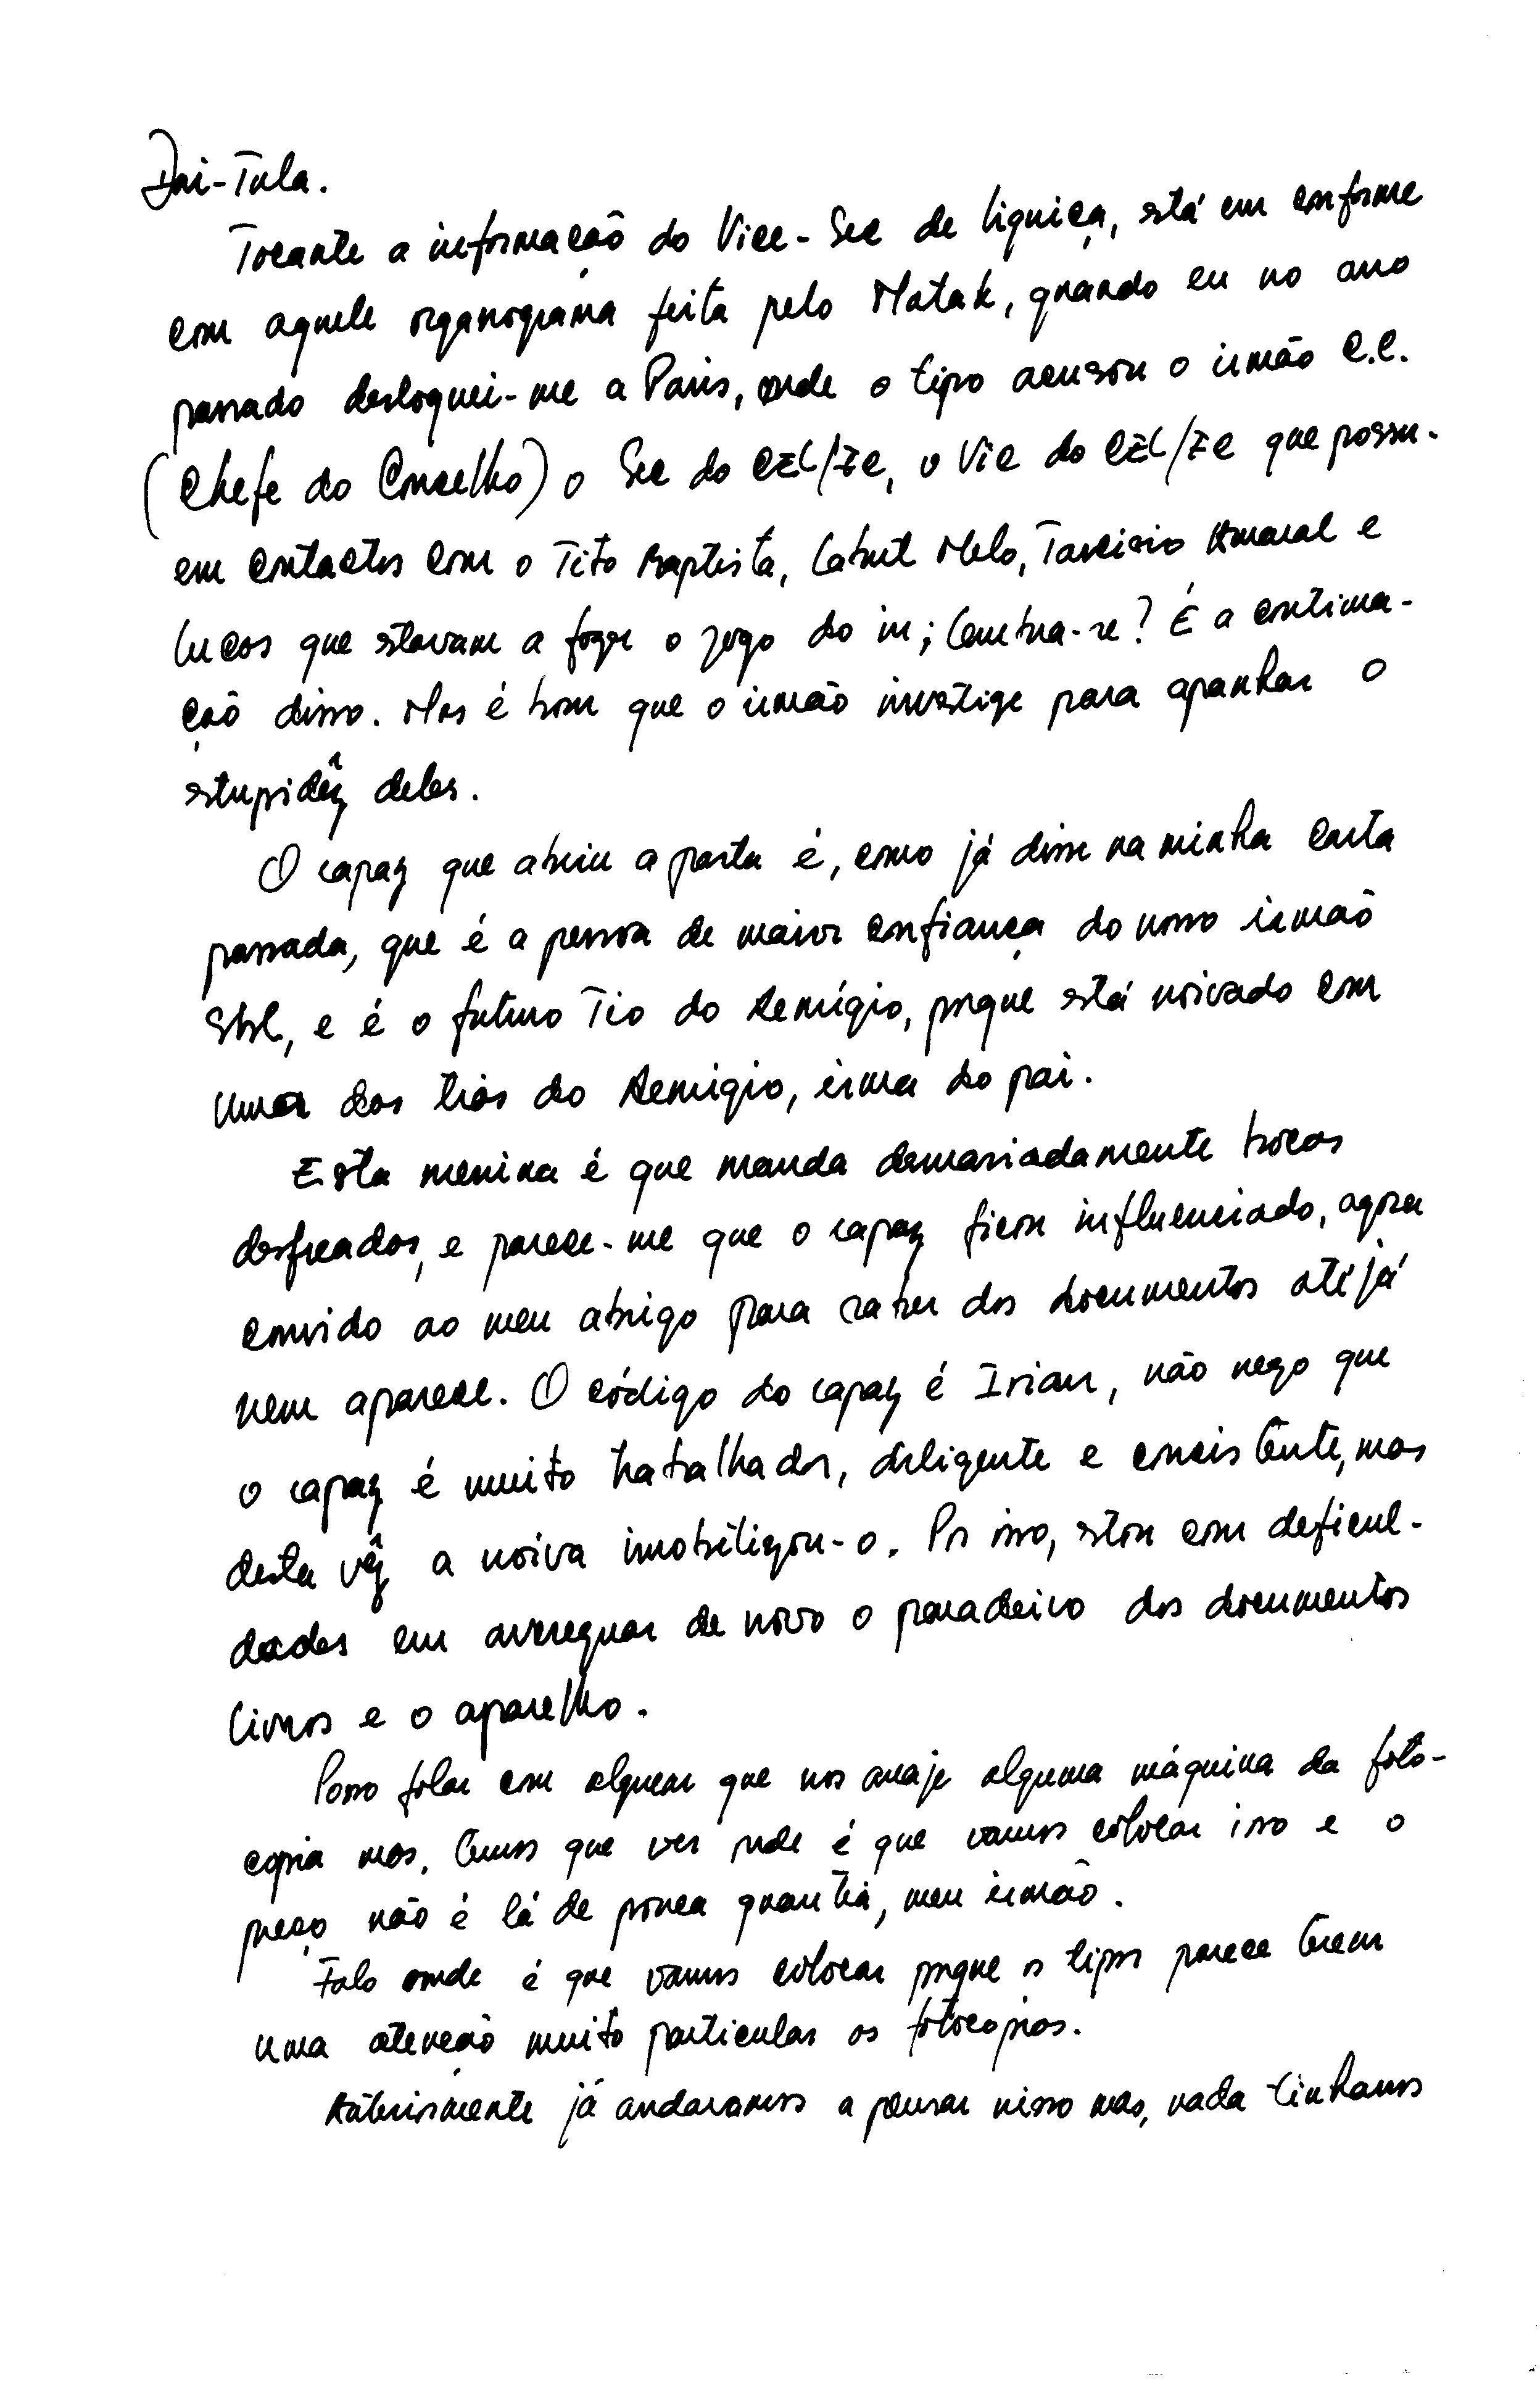 Dai-Tula.
Tocante a informação do Vice-Sec de Liquiça, está em conforme
com aquele organograma feita pelo Matak, quando eu no ano
passado desloquei-me a Paris, onde o tipo acusou o irmão C.C.
(Chefe do Concelho) o Sec do CEL/ZC, o Vic do CEL/ZC que possu-
em contactos com o Tito Baptista, Labut Melo, Tarcisio Amaral e
Lucas que estavam a fazer o jogo do in; lembra-se? É a continua-
ção disso. Mas é bom que o irmão investige para apanhar o
estupidêz deles.
O rapaz que abriu a porta é, como já disse na minha carta
passada, que é a pessoa de maior confiança do nosso irmão
Sbl, e é o futuro Tio do Remígio, porque está noivado com
uma das tias do Remigio, irma do pai.
Esta menina é que manda demasiadamente bocas
desfreadas, e parece-me que o rapaz ficou influenciado, agora
convido ao meu abrigo para saber dos documentos até já
nem aparece. O código do rapaz é Irian, não nego que
o rapaz é muito trabalhador, deligente e concistente, mas
desta vêz a noiva imobilizou-o. Por isso, stou com deficul-
dades em averequar de novo o paradeiro dos documentos
livros e o aparelho.
Posso falar com alguem que nos araje alguma máquina da foto-
copia mas, temos que ver onde é que vamos colocar isso e o
preço não é lá de pouca quantia, meu irmão.
Falo onde é que vamos colocar porque os tipos parece terem
uma atenção muito particular as fotocopias.
Anteriormente já andaramos a pensar nisso mas, nada tinhamos